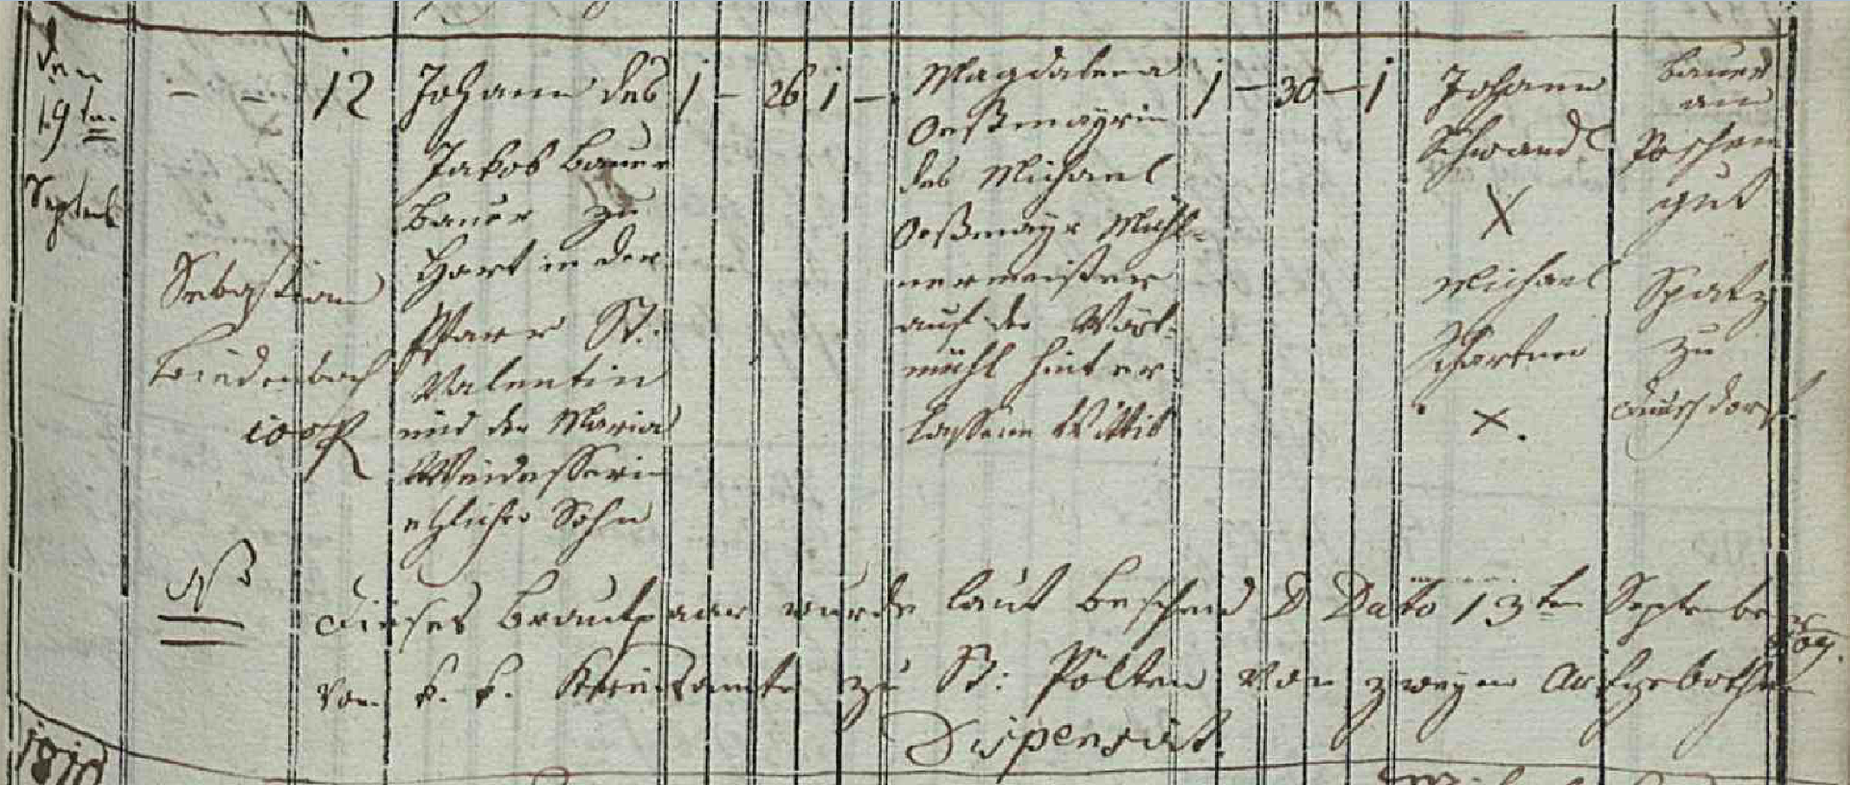 den
19ten
Septemb
Sebastian
Biedenbach
100 fl
12
Johann des
Jakob Bauer
Bauer zu
Hart in der
Pfarr St:
Valentin
und der Maria
ehlicher Sohn
1 – 26 1 –
Magdalena
Oeßmayrin
des Michael
Oeßmayr Mühl-
nermeister
auf der
mühl hinter
lassene Wittib
1 – 30 – 1
Johann
Schwandl
X
Michael
Schartner
X.
Bauer
am
gut
Spatz
zu
NB
Dieses Brautpaar wurde laut Bescheid D Dato 13ten September 809.
von k. k. Kreisamte zu St: Pölten von zweyen Aufgebothen
Dispensirt.
1810